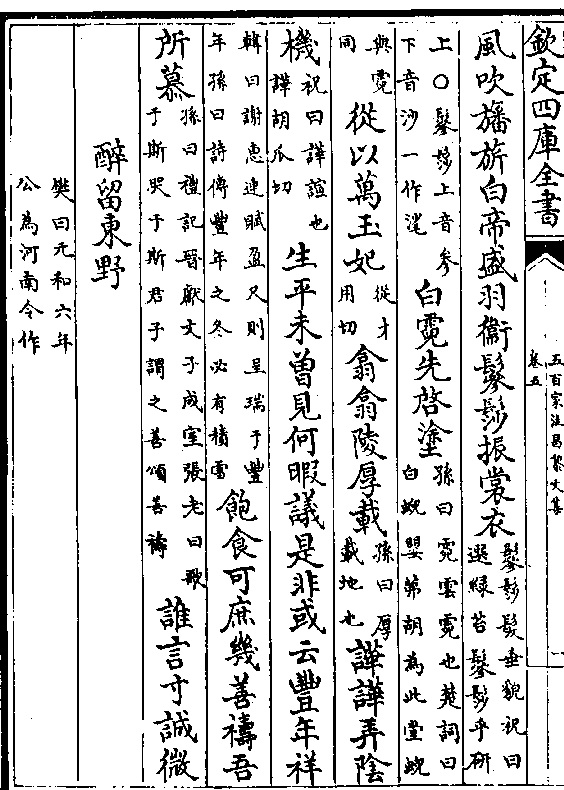 欽定四庫全書
五百家注昌黎文集
卷五
風吹旛旂白帝盛羽衞鬖髿振裳衣鬖髿髮垂貌祝曰選緑苔鬖髿乎研
上〇鬖髿上音參下音沙一作㲚白霓先啓塗孫曰霓雲霓也楚詞曰白蜺嬰茀胡為此堂蜺
與霓同從以萬玉妃從才用切翕翕陵厚載孫曰厚載地也譁譁弄陰
機祝曰譁諠也譁胡瓜切生平未曾見何暇議是非或云豐年祥
韓曰謝惠連賦盈尺則呈瑞于豐年孫曰詩傳豐年之冬必有積雪飽食可庶幾善禱吾
所慕孫曰禮記晉獻文子成室張老曰歌于斯哭于斯君子謂之善頌善禱誰言寸誠微
醉留東野
樊曰元和六年公為河南令作